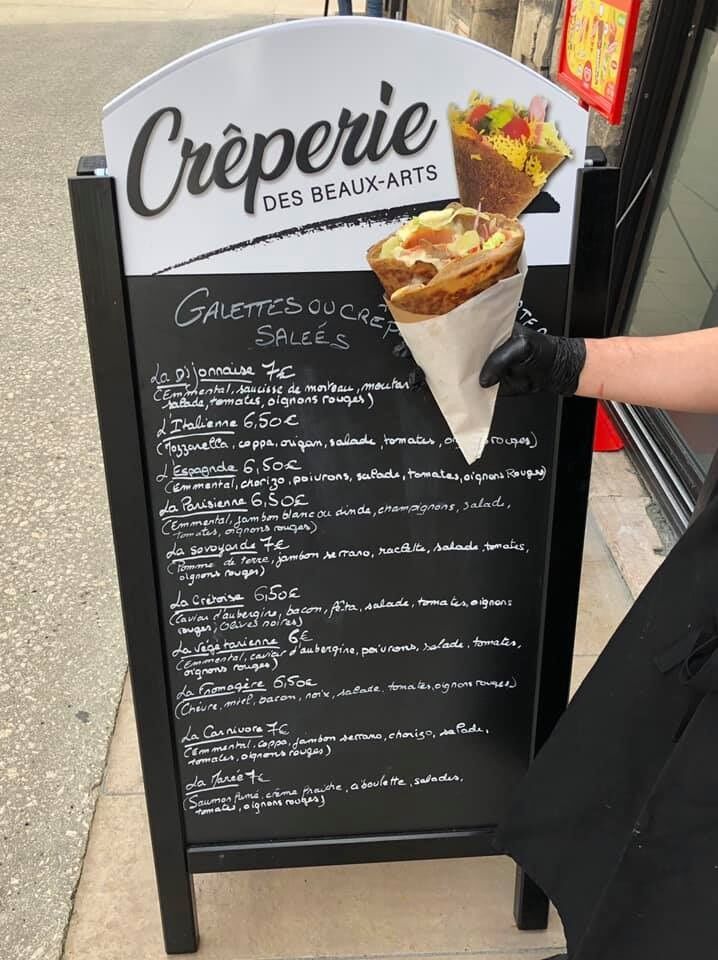 Crêperie
DES BEAUX-ARTS
GALETTES OU CREP
SALEÉS
La Dijonnaise 7€
(Emmental, saucisse de morteau, moutar
salade, tomates, oignons rouges)
L'Italienne 6,50€
(Mozzarella, coppa, origan, salade, tomates, rouges)
L'Espagnole 6,50€
(Emmental, chorizo, poivrons, salade, tomates, oignons Rouges)
La Parisienne 6,50€
(Emmental, jambon blanc ou dinde, champignons, salade,
tomates, oignons rouges)
La savoyarde 7€
(Pomme de terre, jambon serrano, raclette, salade, tomates,
oignons rouges)
La Crétoise 6,50€
(Caviar d'aubergine, bacon, fêta, salade, tomates, oignons
rouges, Olives noires)
La végétarienne 6€
(Emmental, caviar d'aubergine, poivrons, salade, tomates,
oignons rouges)
La Fromagère 6,50€
(Chèvre, miel, bacon, noix, salade, tomates, oignons rouges)
La Carnivore 7€
(Emmental, coppa, jambon serrano, chorizo, salade,
tomates, oignons rouges)
La Marée 7€
(Saumon fumé, crème fraîche, ciboulette, salades,
tomates, oignons rouges)